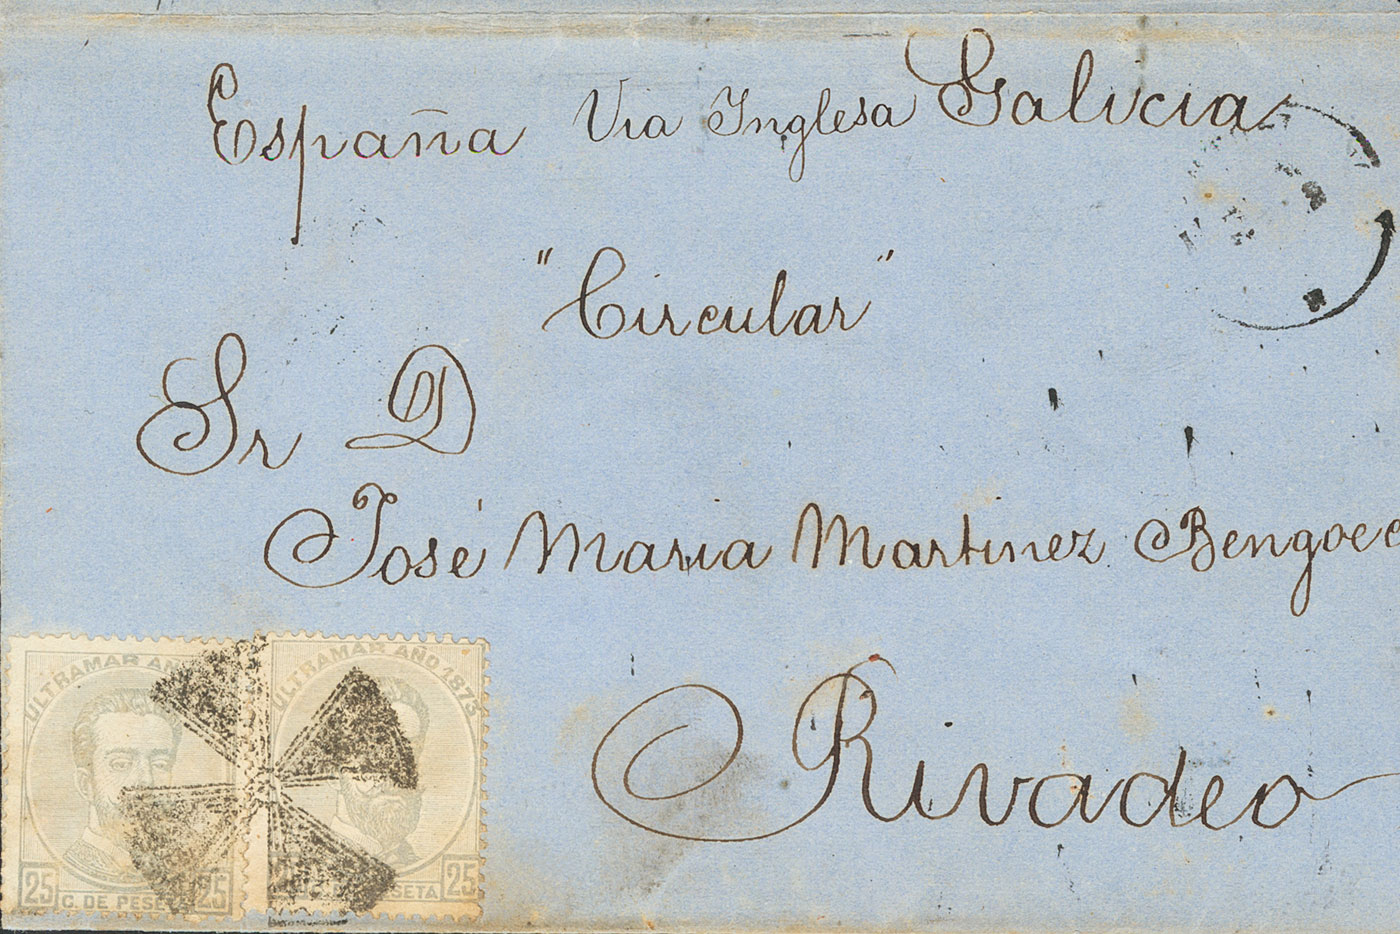 España Via Inglesa Galicia
"Circular"
Sr D
José Maria Martinez Bengoec
Rivadeo
ULTRAMAR AÑO
25 C. DE PESETA 25
ULTRAMAR AÑO 1873
PESETA 25